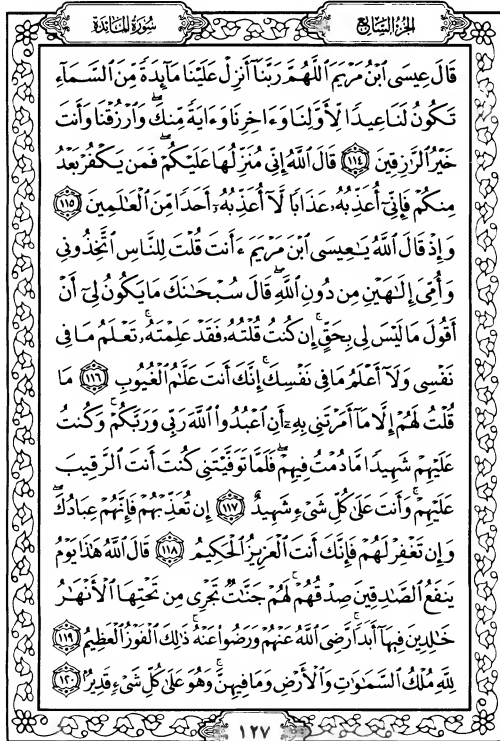 سُورَةُ المَائِدَةِ
الجُزْءُ السَّابِعُ
قَالَ عِيسَى ٱبْنُ مَرْيَمَ ٱللَّهُمَّ رَبَّنَآ أَنزِلْ عَلَيْنَا مَآئِدَةً مِّنَ ٱلسَّمَآءِ
تَكُونُ لَنَا عِيدًا لِّأَوَّلِنَا وَءَاخِرِنَا وَءَايَةً مِّنكَۖ وَٱرْزُقْنَا وَأَنتَ
خَيْرُ ٱلرَّٰزِقِينَ ١١٤ قَالَ ٱللَّهُ إِنِّى مُنَزِّلُهَا عَلَيْكُمْۖ فَمَن يَكْفُرْ بَعْدُ
مِنكُمْ فَإِنِّىٓ أُعَذِّبُهُۥ عَذَابًا لَّآ أُعَذِّبُهُۥٓ أَحَدًا مِّنَ ٱلْعَٰلَمِينَ ١١٥
وَإِذْ قَالَ ٱللَّهُ يَٰعِيسَى ٱبْنَ مَرْيَمَ ءَأَنتَ قُلْتَ لِلنَّاسِ ٱتَّخِذُونِى
وَأُمِّىَ إِلَٰهَيْنِ مِن دُونِ ٱللَّهِۖ قَالَ سُبْحَٰنَكَ مَا يَكُونُ لِىٓ أَنْ
أَقُولَ مَا لَيْسَ لِى بِحَقٍّۚ إِن كُنتُ قُلْتُهُۥ فَقَدْ عَلِمْتَهُۥۚ تَعْلَمُ مَا فِى
نَفْسِى وَلَآ أَعْلَمُ مَا فِى نَفْسِكَۚ إِنَّكَ أَنتَ عَلَّٰمُ ٱلْغُيُوبِ ١١٦ مَا
قُلْتُ لَهُمْ إِلَّا مَآ أَمَرْتَنِى بِهِۦٓ أَنِ ٱعْبُدُوا۟ ٱللَّهَ رَبِّى وَرَبَّكُمْۚ وَكُنتُ
عَلَيْهِمْ شَهِيدًا مَّا دُمْتُ فِيهِمْۖ فَلَمَّا تَوَفَّيْتَنِى كُنتَ أَنتَ ٱلرَّقِيبَ
عَلَيْهِمْۚ وَأَنتَ عَلَىٰ كُلِّ شَىْءٍ شَهِيدٌ ١١٧ إِن تُعَذِّبْهُمْ فَإِنَّهُمْ عِبَادُكَۖ
وَإِن تَغْفِرْ لَهُمْ فَإِنَّكَ أَنتَ ٱلْعَزِيزُ ٱلْحَكِيمُ ١١٨ قَالَ ٱللَّهُ هَٰذَا يَوْمُ
يَنفَعُ ٱلصَّٰدِقِينَ صِدْقُهُمْۚ لَهُمْ جَنَّٰتٌ تَجْرِى مِن تَحْتِهَا ٱلْأَنْهَٰرُ
خَٰلِدِينَ فِيهَآ أَبَدًاۚ رَّضِىَ ٱللَّهُ عَنْهُمْ وَرَضُوا۟ عَنْهُۚ ذَٰلِكَ ٱلْفَوْزُ ٱلْعَظِيمُ ١١٩
لِلَّهِ مُلْكُ ٱلسَّمَٰوَٰتِ وَٱلْأَرْضِ وَمَا فِيهِنَّۚ وَهُوَ عَلَىٰ كُلِّ شَىْءٍ قَدِيرٌۢ ١٢٠
١٢٧